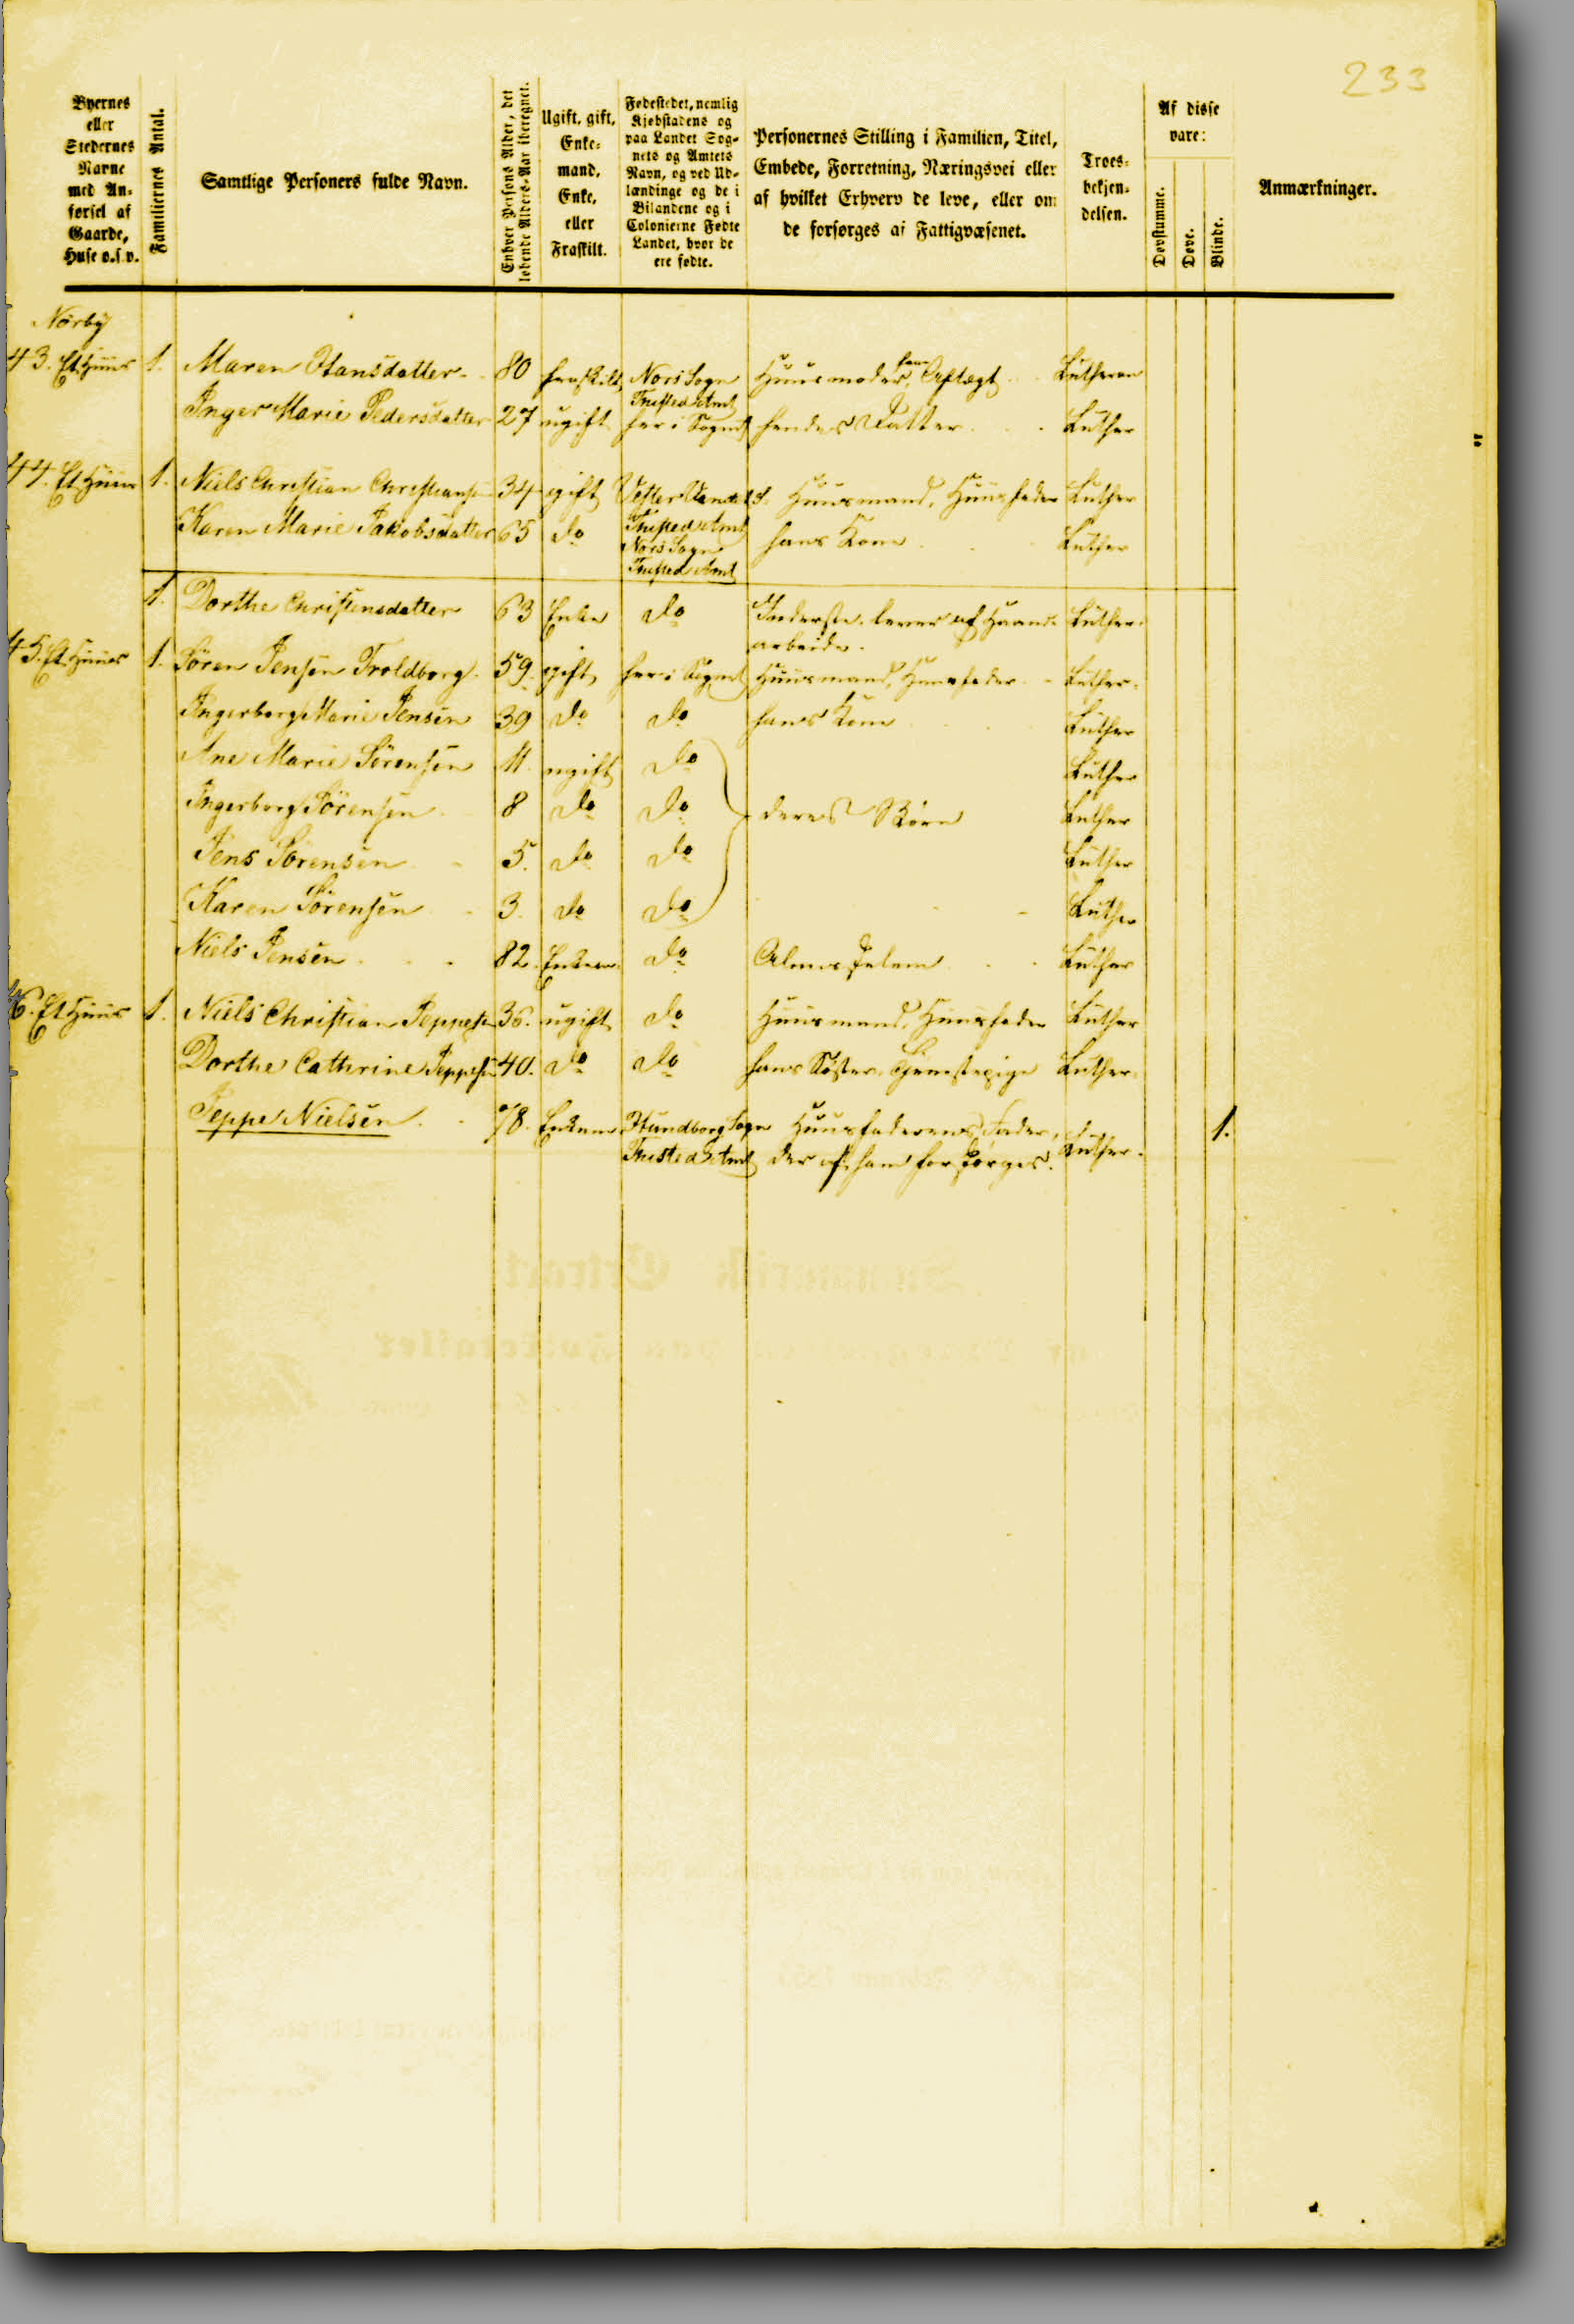 233
Byernes eller Stedernes Navne med Anførsel af Gaarde, Huse o.s.v.
Familiernes Antal.
Samtlige Personers fulde Navn.
Enhver Persons Alder, det løbende Alders-Aar iberegnet.
Ugift, gift, Enkemand, Enke, eller Fraskilt.
Fødestedet, nemlig Kjøbstadens og paa Landet Sognets og Amtets Navn, og ved Udlændinge og de i Bilandene og i Colonierne Fødte Landet, hvor de ere fødte.
Personernes Stilling i Familien, Titel, Embede, Forretning, Næringsvei eller af hvilket Erhverv de leve, eller om de forsørges af Fattigvæsenet.
Troesbekjendelsen.
Af disse vare:
Døvstumme.
Døve.
Blinde.
Anmærkninger.
Nørby
43. Et Huus 1. Maren Hansdatter 80 fraskilt Nors Sogn Thisted Amt Huusmoder, Aftægt Lutheran
Inger Marie Pedersdatter 27 ugift her i Sognet hendes Datter Luther
44. Et Huus 1. Niels Christian Christiansen 34 gift Vester Vandet S. Thisted Amt Huusmand, Huusfader Luther
Karen Marie Jakobsdatter 65 do Nors Sogn Thisted Amt hans Kone Luther
1. Dorthe Christensdatter 63 Enke do Inderste, lever af Haandarbeide. Luther
45. Et Huus 1. Sören Jensen Troldborg 59. gift her i Sognet Huusmand, Huusfader Luther
Ingerborg Marie Jensen 39 do do hans Kone Luther
Ane Marie Sörensen 11. ugift do Luther
Ingerborg Sörensen 8 do do deres Börn Luther
Jens Sörensen 5. do do Luther
Karen Sörensen 3. do do Luther
Niels Jensen 82. Enkem. do Almisselem Luther
46. Et Huus 1. Niels Christian Jeppesen 36. ugift do Huusmand, Huusfader Luther
Dorthe Cathrine Jeppesen 40. do do hans Söster, Tjenestepige Luther
Jeppe Nielsen 78. Enkem Hundborg Sogn Thisted Amt Huusfaderens Fader, der af ham forsørges. Luther. 1.